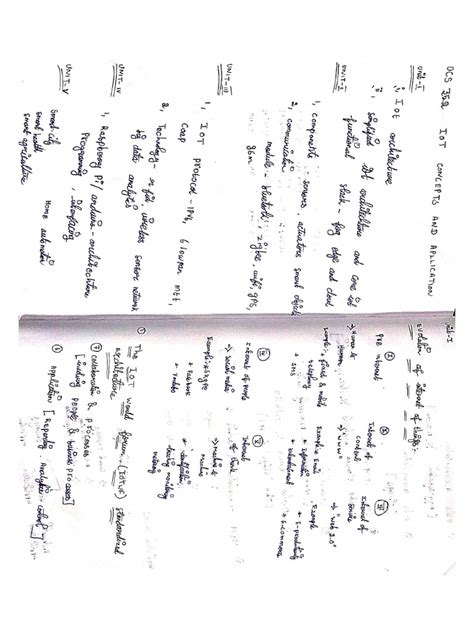 OCS 352 IOT CONCEPTS AND APPLICATION
Unit-I
1, IOt architecture
simplified iot architecture and core iot
functional stack - fog edge and cloud
UNIT-II
1, Components sensors, actuators smart objects
2, communication
module - bluetooth, zigbee, wifi, GPS,
gsm
UNIT-III
1, IOT protocol - IPv6, 6lowpan, MQTT,
Coap
2, Technology - wireless sensor network
big data analytics
UNIT-IV
1, Raspberry pi/ - architecture
Programming, interfacing
UNIT-V
Smart city Home automation
smart health
smart agriculture
Unit-I
evolution of internet of things:-
I II III
PRE internet Internet of Internet of
content
→ Human to → "WWW" → "web 2.0"
Human
Example: Example: Email Example
+ SMS + information + E-productivity
+ entertainment + E-commerce
IV V
Internet of people Internet
of things
→ social media → machine to
machine
Example: skype
+ Facebook
+ identification
tracking monitoring
① The IOT world forum [IOTWF] standardized
architecture
⑦ collaboration & processes
[involving PEOPLE & business PROCESSES]
⑥ Application [Reporting Analytics control]